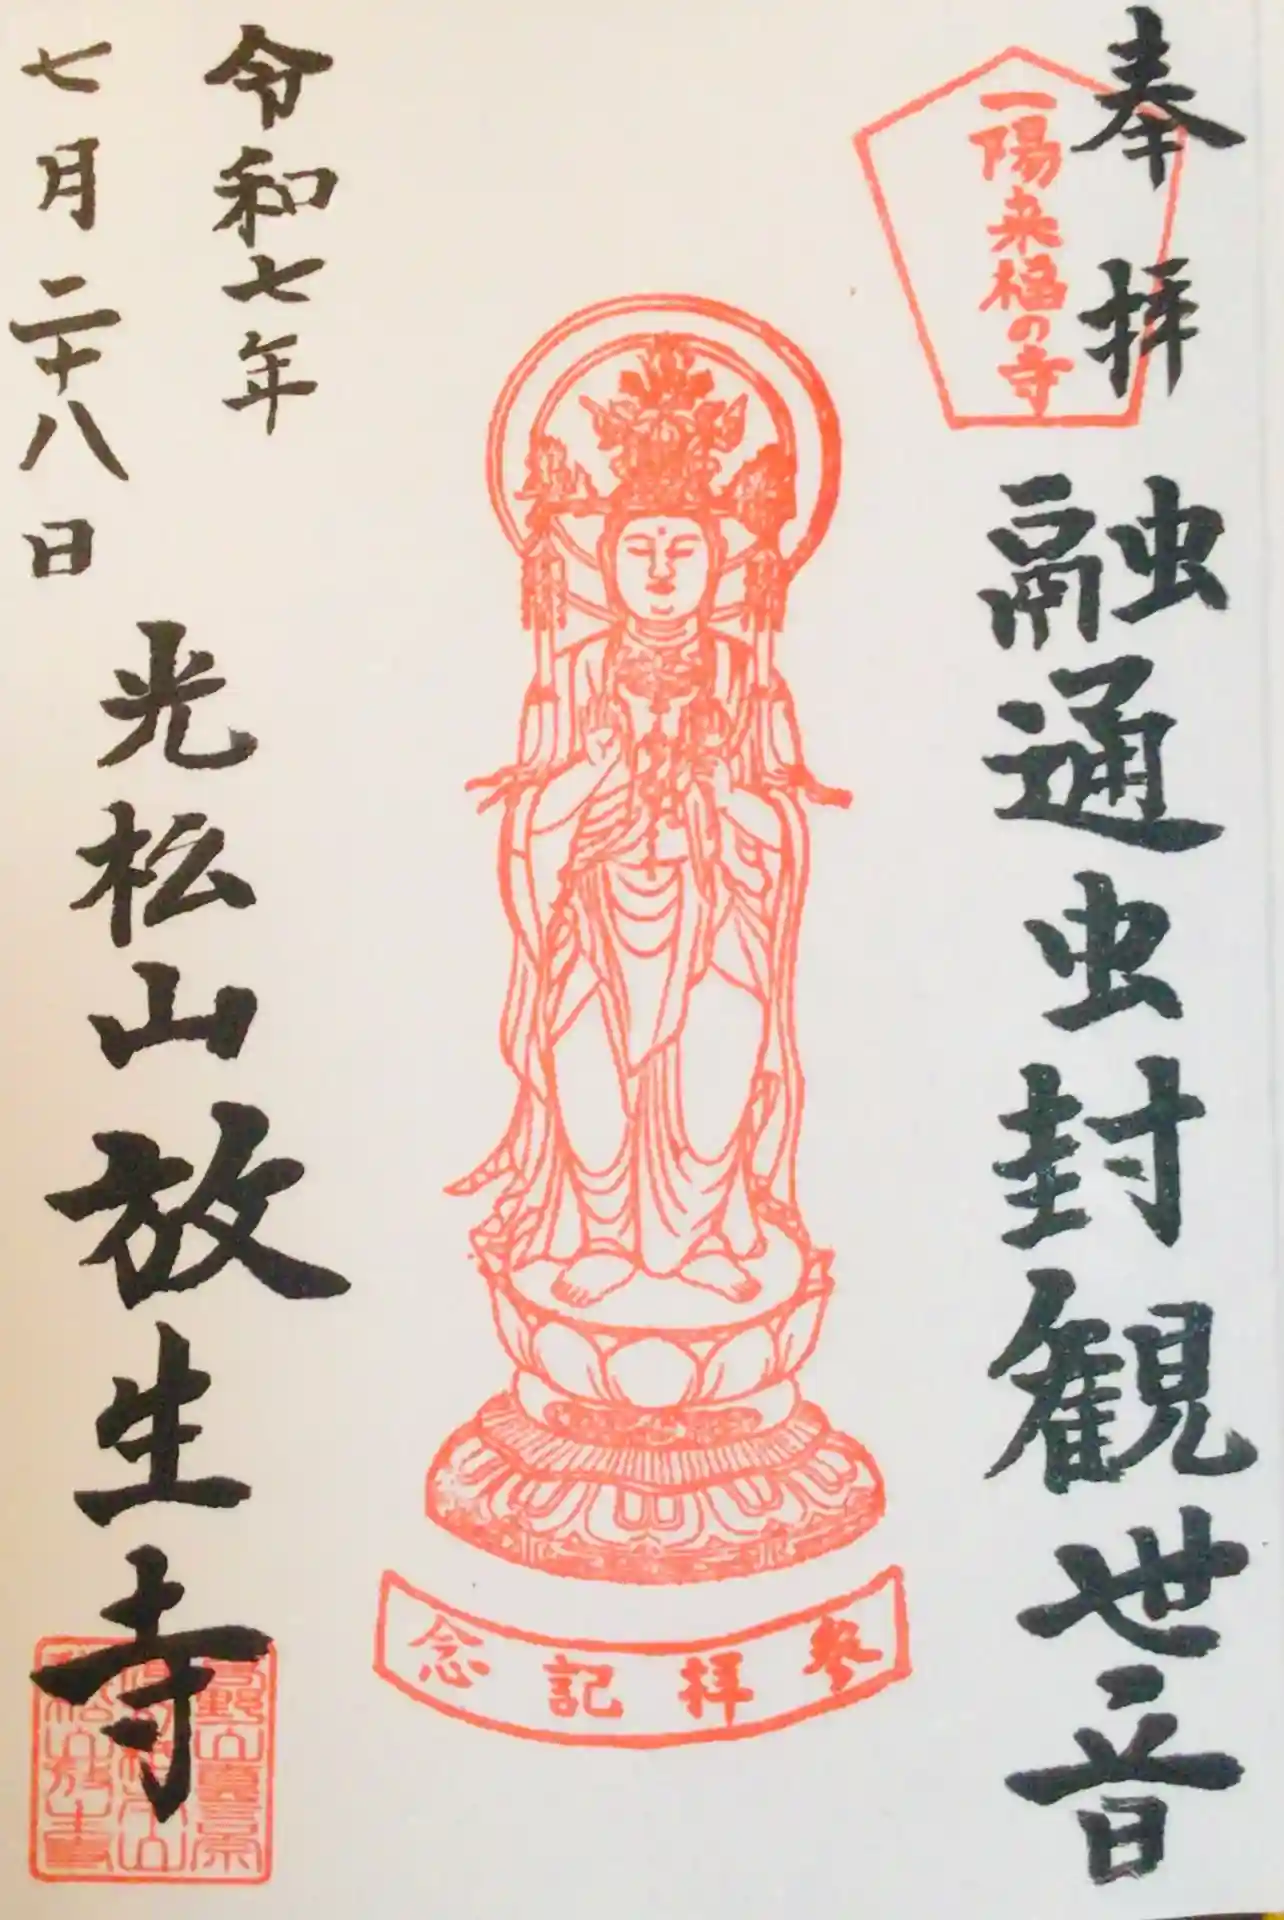 奉拝
一陽来福の寺
融通虫封観世音
参拝記念
令和七年
七月二十八日
光松山放生寺